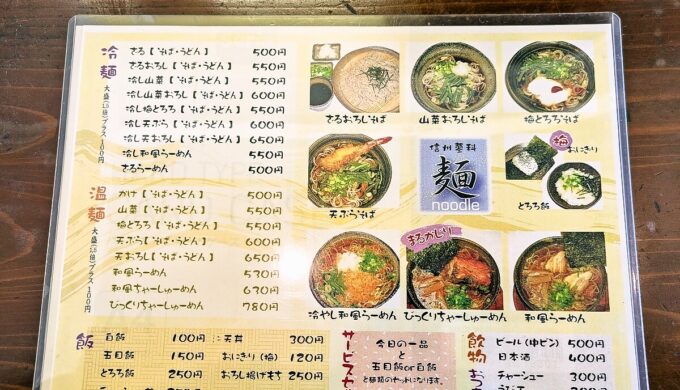 冷麺
大盛(1.5倍)プラス100円
ざる【そば・うどん】 500円
ざるおろし【そば・うどん】 550円
冷し山菜【そば・うどん】 550円
冷し山菜おろし【そば・うどん】 600円
冷し梅とろろ【そば・うどん】 550円
冷し天ぷら【そば・うどん】 600円
冷し天おろし【そば・うどん】 650円
冷し和風らーめん 550円
ざるらーめん 550円
温麺
大盛(1.5倍)プラス100円
かけ【そば・うどん】 500円
山菜【そば・うどん】 550円
梅とろろ【そば・うどん】 550円
天ぷら【そば・うどん】 600円
天おろし【そば・うどん】 650円
和風らーめん 570円
和風ちゃーしゅーめん 670円
びっくりちゃーしゅーめん 780円
ざるおろしそば
山菜おろしそば
梅とろろそば
天ぷらそば
信州蓼科
麺
noodle
梅おにぎり
とろろ飯
まるかじり
冷やし和風らーめん
びっくりちゃーしゅーめん
和風らーめん
飯
白飯 100円
五目飯 150円
とろろ飯 250円
ミニ天丼 300円
おにぎり(梅) 120円
おろし揚げもち 250円
サービス
今日の一品
と
五目飯or白飯
と麺類のセットになります。
飲物
ビール(中ビン) 500円
日本酒 400円
チャーシュー 300円